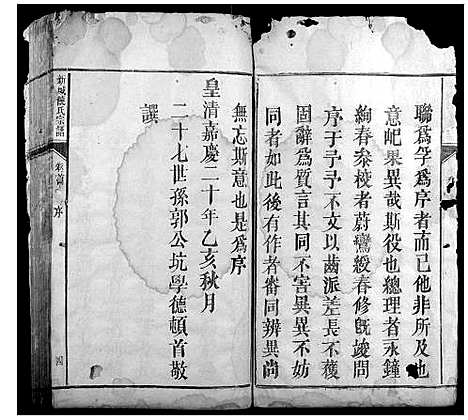 聯為孚為序者而已他非所及也
意屺畢異哉斯役也總理者永鐘
絢春叅校者蔚鸞綬春修旣竣問
序于予予不文以齒派差長不獲
固辭為質言其同不害異異不妨
同者如此後有作者審同辨異尚
無忘斯意也是為序
皇清嘉慶二十年乙亥秋月
二十七世孫郭公坑學德頓首敬
譔
新城饒氏宗譜
卷首
序
四